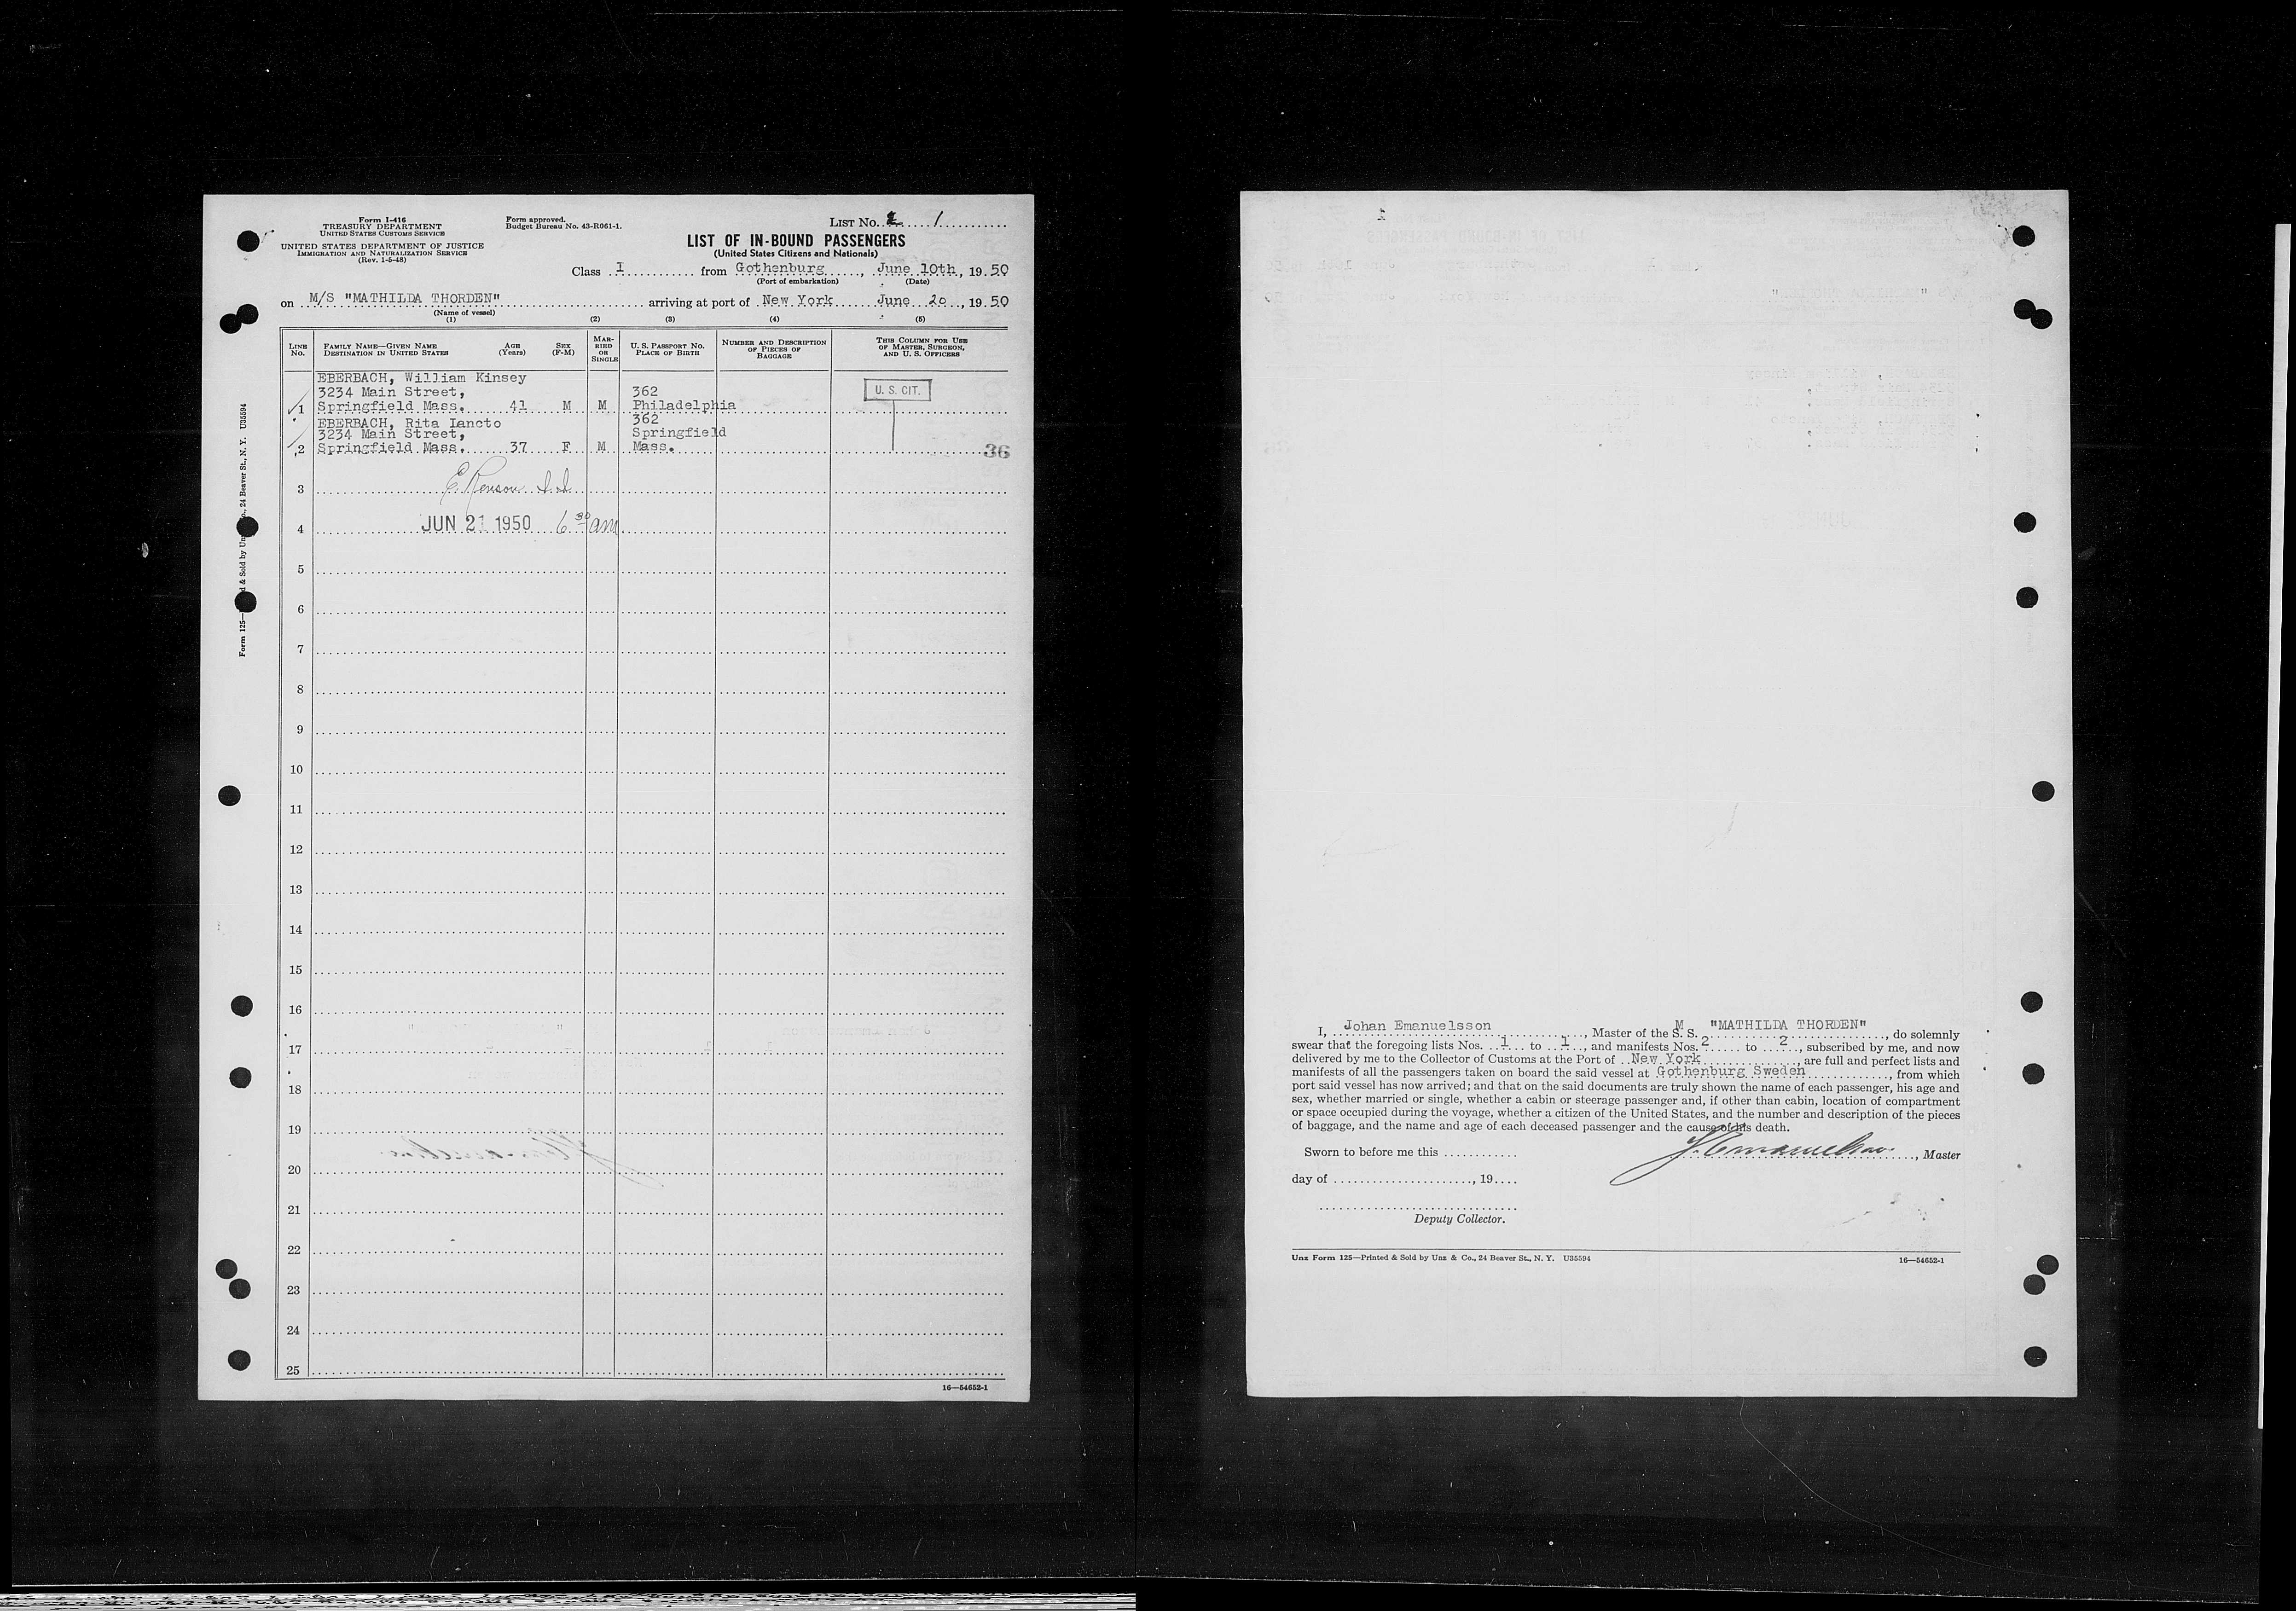 Form I-416
TREASURY DEPARTMENT
UNITED STATES CUSTOMS SERVICE
UNITED STATES DEPARTMENT OF JUSTICE
IMMIGRATION AND NATURALIZATION SERVICE
(Rev. 1-5-48)
Form approved.
Budget Bureau No. 43-R061-1.
LIST No. 1
LIST OF IN-BOUND PASSENGERS
(United States Citizens and Nationals)
Class I from Gothenburg, June 10th, 19 50
(Port of embarkation) (Date)
on M/S "MATHILDA THORDEN" arriving at port of New York June 20, 19 50
(Name of vessel)
(1) (2) (3) (4) (5)
LINE No. FAMILY NAME—GIVEN NAME DESTINATION IN UNITED STATES AGE (Years) SEX (F-M) MARRIED OR SINGLE U. S. PASSPORT No. PLACE OF BIRTH NUMBER AND DESCRIPTION OF PIECES OF BAGGAGE THIS COLUMN FOR USE OF MASTER, SURGEON, AND U. S. OFFICERS
EBERBACH, William Kinsey
3234 Main Street, 362 U. S. CIT.
1 Springfield Mass. 41 M M Philadelphia
EBERBACH, Rita Iancto 362
3234 Main Street, Springfield
2 Springfield Mass. 37 F M Mass. 36
3
4 JUN 21 1950 6 30 am
5
6
7
8
9
10
11
12
13
14
15
16
17
18
19
20
21
22
23
24
25
16—54652-1
24 Beaver St., N. Y. U35594
I, Johan Emanuelsson, Master of the S. S. M "MATHILDA THORDEN", do solemnly
swear that the foregoing lists Nos. 1 to 1, and manifests Nos. 2 to 2, subscribed by me, and now
delivered by me to the Collector of Customs at the Port of New York, are full and perfect lists and
manifests of all the passengers taken on board the said vessel at Gothenburg Sweden, from which
port said vessel has now arrived; and that on the said documents are truly shown the name of each passenger, his age and
sex, whether married or single, whether a cabin or steerage passenger and, if other than cabin, location of compartment
or space occupied during the voyage, whether a citizen of the United States, and the number and description of the pieces
of baggage, and the name and age of each deceased passenger and the cause of his death.
Sworn to before me this
J. Emanuelsson, Master
day of , 19
Deputy Collector.
Unz Form 125—Printed & Sold by Unz & Co., 24 Beaver St., N. Y. U35594
16—54652-1